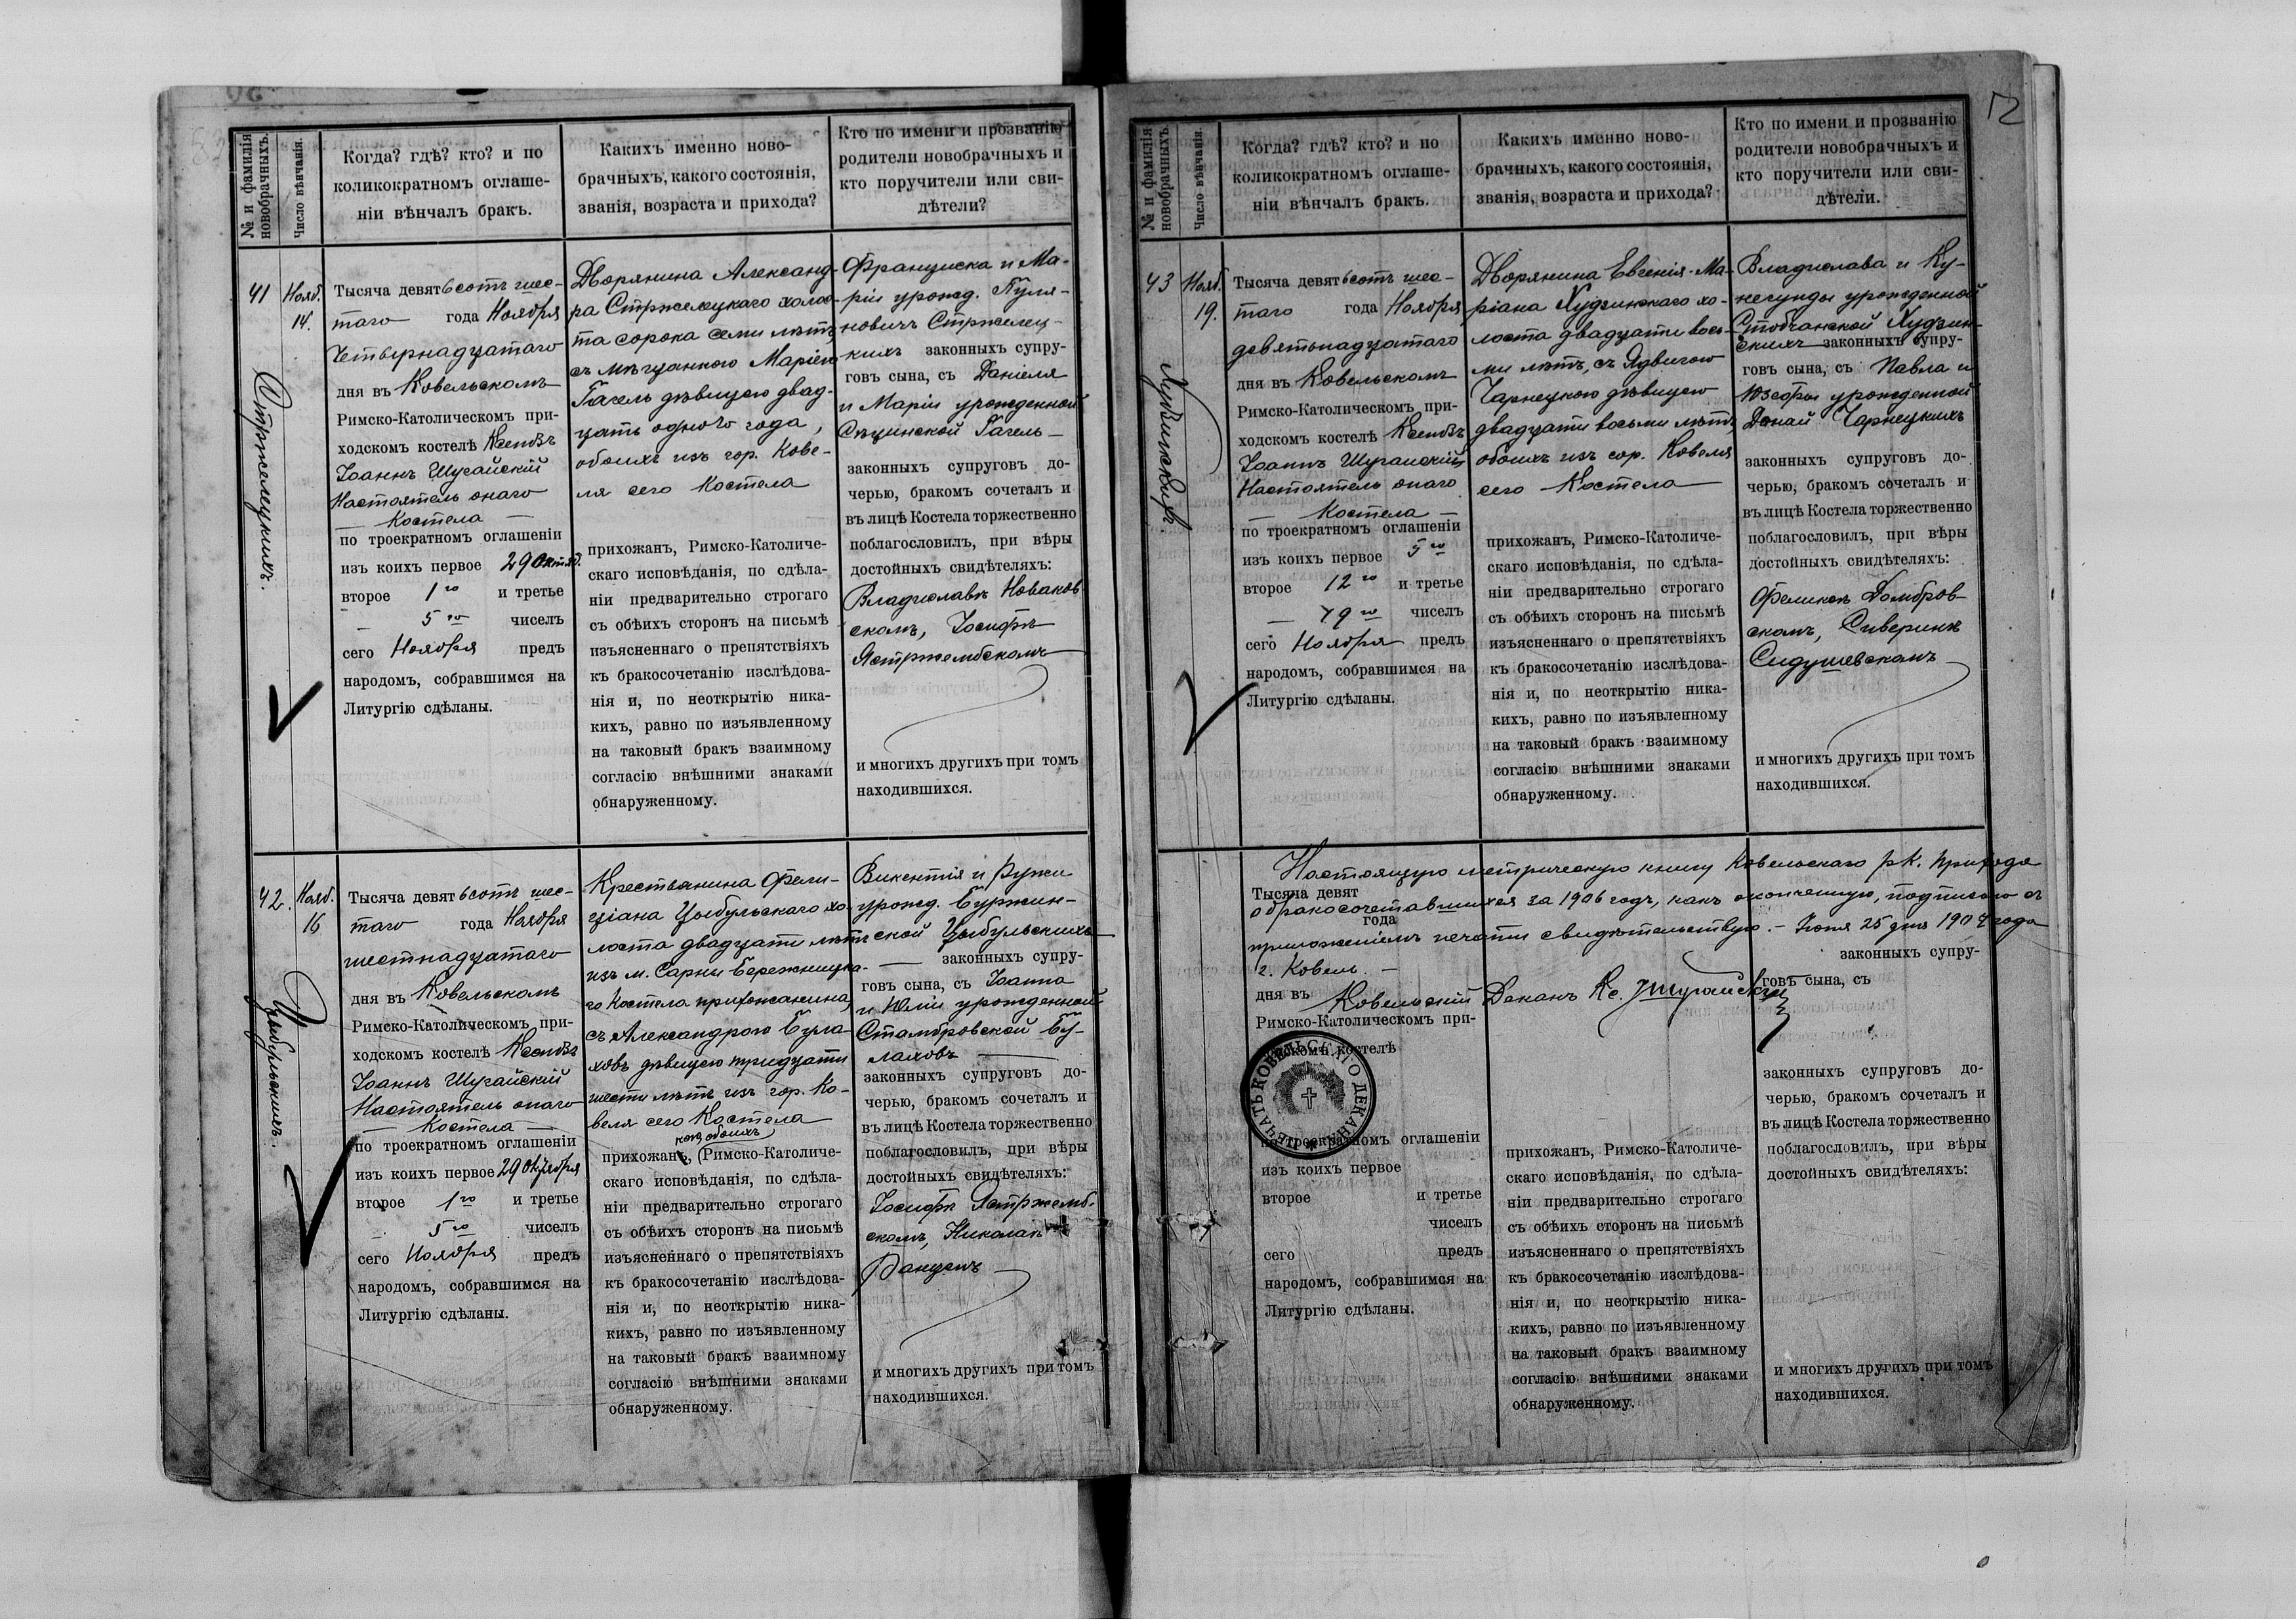 № и фамилія новобрачныхъ.
Число вѣнчанія.
Когда? гдѣ? кто? и по
коликократномъ оглаше-
ніи вѣнчалъ бракъ.
Какихъ именно ново-
брачныхъ, какого состоянія,
званія, возраста и прихода?
Кто по имени и прозванію
родители новобрачныхъ и
кто поручители или сви-
дѣтели?
41
Стржелецкихъ.
Нояб.
14.
Тысяча девятьсотъ шес-
таго года Ноября
Четырнадцатаго
дня въ Ковельскомъ
Римско-Католическомъ при-
ходскомъ костелѣ Ксендзъ
Іоаннъ Шугайскій
Настоятель онаго
— Костела —
по троекратномъ оглашеніи
изъ коихъ первое 29 Октяб.
второе 1го и третье
— 5го чиселъ
сего Ноября предъ
народомъ, собравшимся на
Литургію сдѣланы.
Дворянина Александ-
ра Стржелецкаго холос-
та сорока семи лѣтъ,
съ мѣщанкою Маріею
Гагель дѣвицею двад-
цать одного года,
обоихъ изъ гор. Кове-
ля сего Костела
прихожанъ, Римско-Католиче-
скаго исповѣданія, по сдѣла-
ніи предварительно строгаго
съ обѣихъ сторонъ на письмѣ
изъясненнаго о препятствіяхъ
къ бракосочетанію изслѣдова-
нія и, по неоткрытію ника-
кихъ, равно по изъявленному
на таковый бракъ взаимному
согласію внѣшними знаками
обнаруженному.
Франциска и Ма-
ріи урожд. Куля-
новичъ Стржелец-
кихъ законныхъ супру-
говъ сына, съ Даніеля
и Маріи урожденной
Гагель —
законныхъ супруговъ до-
черью, бракомъ сочеталъ и
въ лицѣ Костела торжественно
поблагословилъ, при вѣры
достойныхъ свидѣтеляхъ:
Владиславѣ Новаков-
скомъ, Іосифѣ
Ястржембскомъ
и многихъ другихъ при томъ
находившихся.
42.
Цыбульскихъ.
Нояб.
16
Тысяча девятьсотъ шес-
таго года Ноября
шестнадцатаго
дня въ Ковельскомъ
Римско-Католическомъ при-
ходскомъ костелѣ Ксендзъ
Іоаннъ Шугайскій
Настоятель онаго
— Костела —
по троекратномъ оглашеніи
изъ коихъ первое 29 Октября
второе 1го и третье
5го чиселъ
сего Ноября предъ
народомъ, собравшимся на
Литургію сдѣланы.
Крестьянина Фели-
ціана Цыбульскаго хо-
лоста двадцати лѣтъ
изъ м. Сарны Бережницка-
го Костела прихожанина,
съ Александрою Була-
ховъ дѣвицею тридцати
шести лѣтъ изъ гор. Ко-
веля сего Костела
обоихъ
прихожанъ, (Римско-Католиче-
скаго исповѣданія, по сдѣла-
ніи предварительно строгаго
съ обѣихъ сторонъ на письмѣ
изъясненнаго о препятствіяхъ
къ бракосочетанію изслѣдова-
нія и, по неоткрытію ника-
кихъ, равно по изъявленному
на таковый бракъ взаимному
согласію внѣшними знаками
обнаруженному.
Викентія и Ружи
урожд. Буржин-
ской Цыбульскихъ
— законныхъ супру-
говъ сына, съ Іоанна
и Юліи урожденной
Стамбровской Бу-
лаховъ —
законныхъ супруговъ до-
черью, бракомъ сочеталъ и
въ лицѣ Костела торжественно
поблагословилъ, при вѣры
достойныхъ свидѣтеляхъ:
Іосифѣ Ястржемб-
скомъ, Николаѣ
и многихъ другихъ при томъ
находившихся.
№ и фамилія новобрачныхъ.
Число вѣнчанія.
Когда? гдѣ? кто? и по
коликократномъ оглаше-
ніи вѣнчалъ бракъ.
Какихъ именно ново-
брачныхъ, какого состоянія,
званія, возраста и прихода?
Кто по имени и прозванію
родители новобрачныхъ и
кто поручители или сви-
дѣтели.
43
Худзинскихъ
Нояб.
19.
Тысяча девятьсотъ шес-
таго года Ноября
девятнадцатаго
дня въ Ковельскомъ
Римско-Католическомъ при-
ходскомъ костелѣ Ксендзъ
Іоаннъ Шугайскій
Настоятель онаго
— Костела —
по троекратномъ оглашеніи
изъ коихъ первое 5го
второе 12го и третье
— 19го чиселъ
сего Ноября предъ
народомъ, собравшимся на
Литургію сдѣланы.
Дворянина Евгенія-Ма-
ріана Худзинскаго хо-
лоста двадцати вось-
ми лѣтъ, съ Ядвигою
Чарнецкою дѣвицею
двадцати восьми лѣтъ,
обоихъ изъ гор. Ковеля
сего Костела —
прихожанъ, Римско-Католиче-
скаго исповѣданія, по сдѣла-
ніи предварительно строгаго
съ обѣихъ сторонъ на письмѣ
изъясненнаго о препятствіяхъ
къ бракосочетанію изслѣдова-
нія и, по неоткрытію ника-
кихъ, равно по изъявленному
на таковый бракъ взаимному
согласію внѣшними знаками
обнаруженному.
Владислава и Ку-
негунды урожденной
Худзин-
скихъ законныхъ супру-
говъ сына, съ Павла и
Юзефы урожденной
Донай Чарнецкихъ
законныхъ супруговъ до-
черью, бракомъ сочеталъ и
въ лицѣ Костела торжественно
поблагословилъ, при вѣры
достойныхъ свидѣтеляхъ:
Феликсѣ Домбров-
скомъ, Северинѣ
Сидушевскомъ
и многихъ другихъ при томъ
находившихся.
Настоящую метрическую книгу Ковельскаго р.к. прихода
Тысяча девят
о бракосочетавшихся за 1906 годъ, какъ оконченную, подписью съ
года
приложеніемъ печати свидѣтельствую. — Іюня 25 дня 1907 года
законныхъ супру-
г. Ковель. —
говъ сына, съ
дня въ
Ковельскій Деканъ Кс. Шугайскій
Римско-Католическомъ при-
ходскомъ костелѣ
ПЕЧАТЬ КОВЕЛЬСКАГО ДЕКАНА
по троекратномъ оглашеніи
изъ коихъ первое
второе и третье
чиселъ
сего предъ
народомъ, собравшимся на
Литургію сдѣланы.
прихожанъ, Римско-Католиче-
скаго исповѣданія, по сдѣла-
ніи предварительно строгаго
съ обѣихъ сторонъ на письмѣ
изъясненнаго о препятствіяхъ
къ бракосочетанію изслѣдова-
нія и, по неоткрытію ника-
кихъ, равно по изъявленному
на таковый бракъ взаимному
согласію внѣшними знаками
обнаруженному.
законныхъ супруговъ до-
черью, бракомъ сочеталъ и
въ лицѣ Костела торжественно
поблагословилъ, при вѣры
достойныхъ свидѣтеляхъ:
и многихъ другихъ при томъ
находившихся.